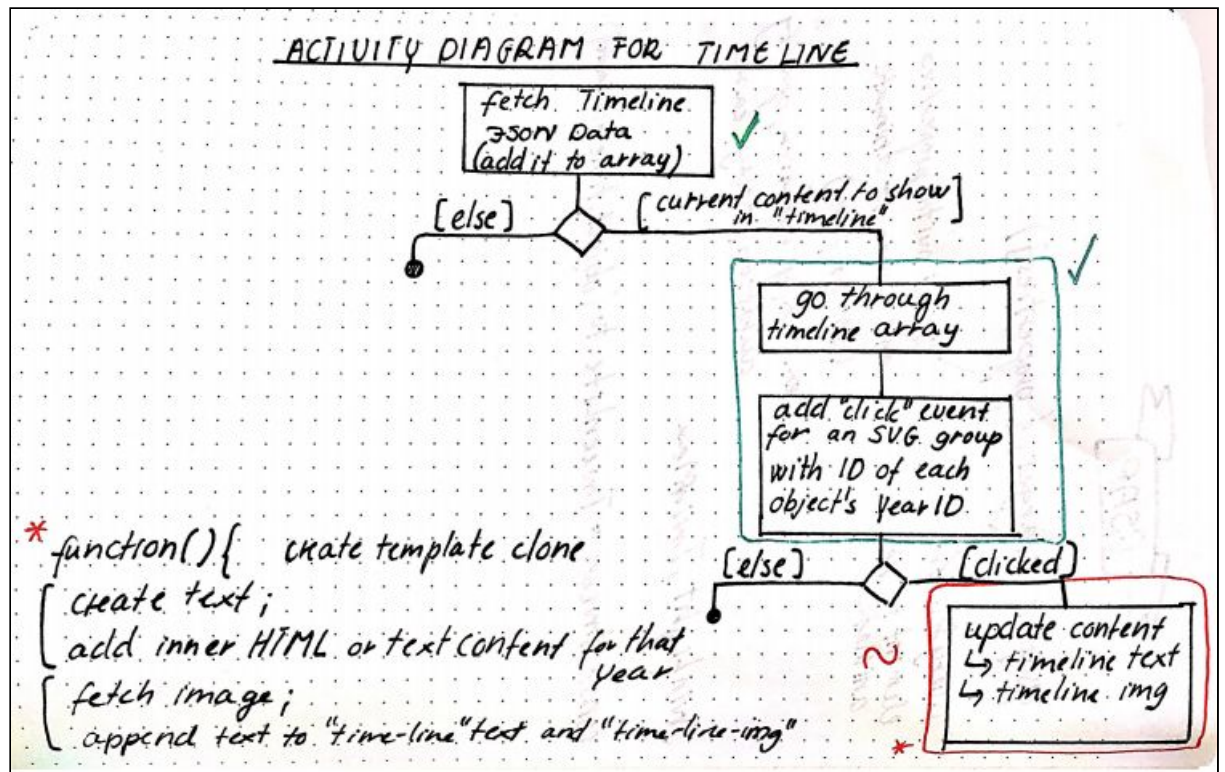 ACTIVITY DIAGRAM FOR TIMELINE
fetch Timeline
JSON Data
(add it to array)
[else]
[current content to show
in "timeline"]
go through
timeline array
add "click" event
for an SVG group
with ID of each
object's year ID
[else]
[clicked]
update content
↳ timeline text
↳ timeline img
*
* function(){ create template clone
create text;
add inner HTML or text content for that
year
fetch image;
append text to "time-line" text and "time-line-img"